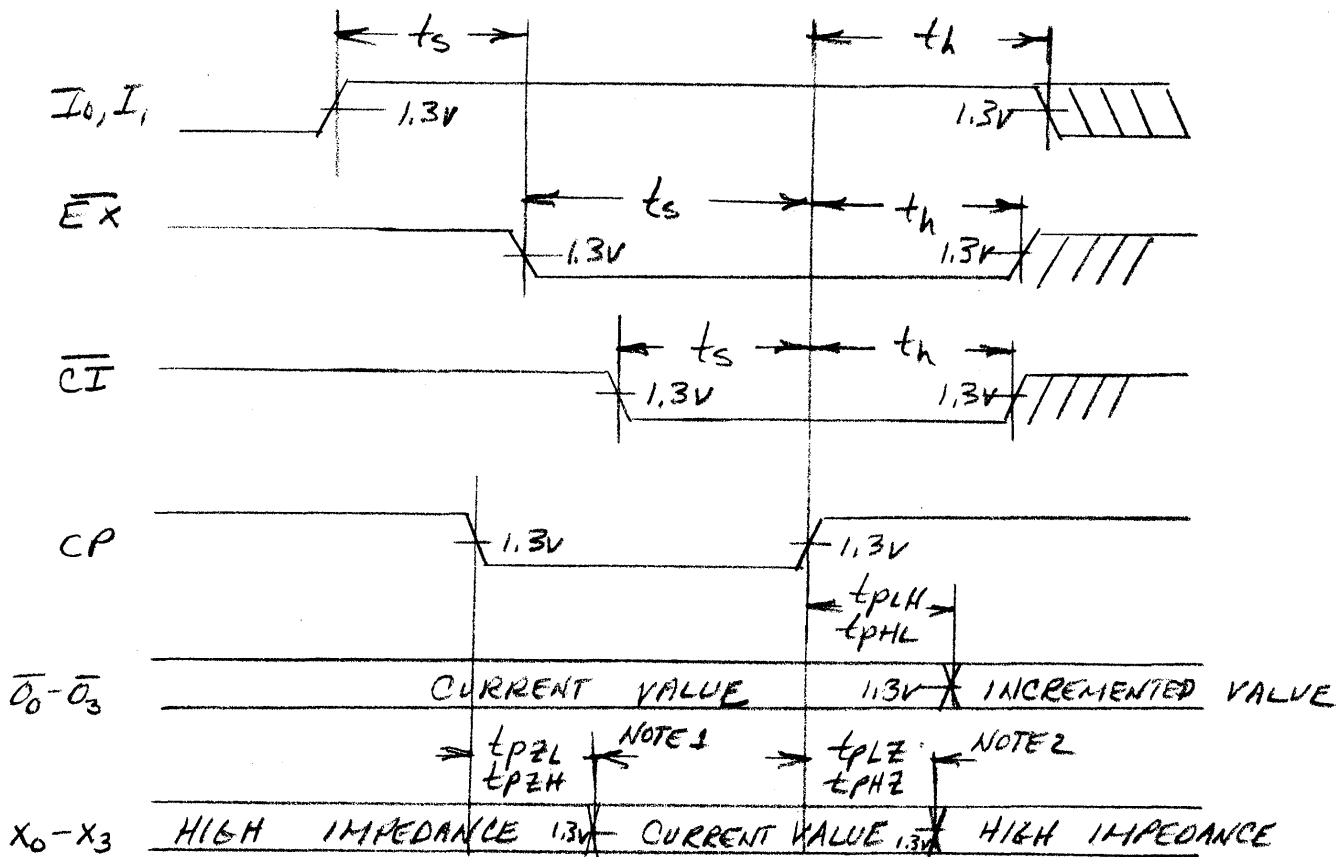 ts th
I0, I1 1.3V 1.3V
ts th
EX 1.3V 1.3V
ts th
CI 1.3V 1.3V
CP 1.3V 1.3V
tPLH
tPHL
O0-O3 CURRENT VALUE 1.3V INCREMENTED VALUE
tPZL NOTE 1 tPLZ NOTE 2
tPZH tPHZ
X0-X3 HIGH IMPEDANCE 1.3V CURRENT VALUE 1.3V HIGH IMPEDANCE